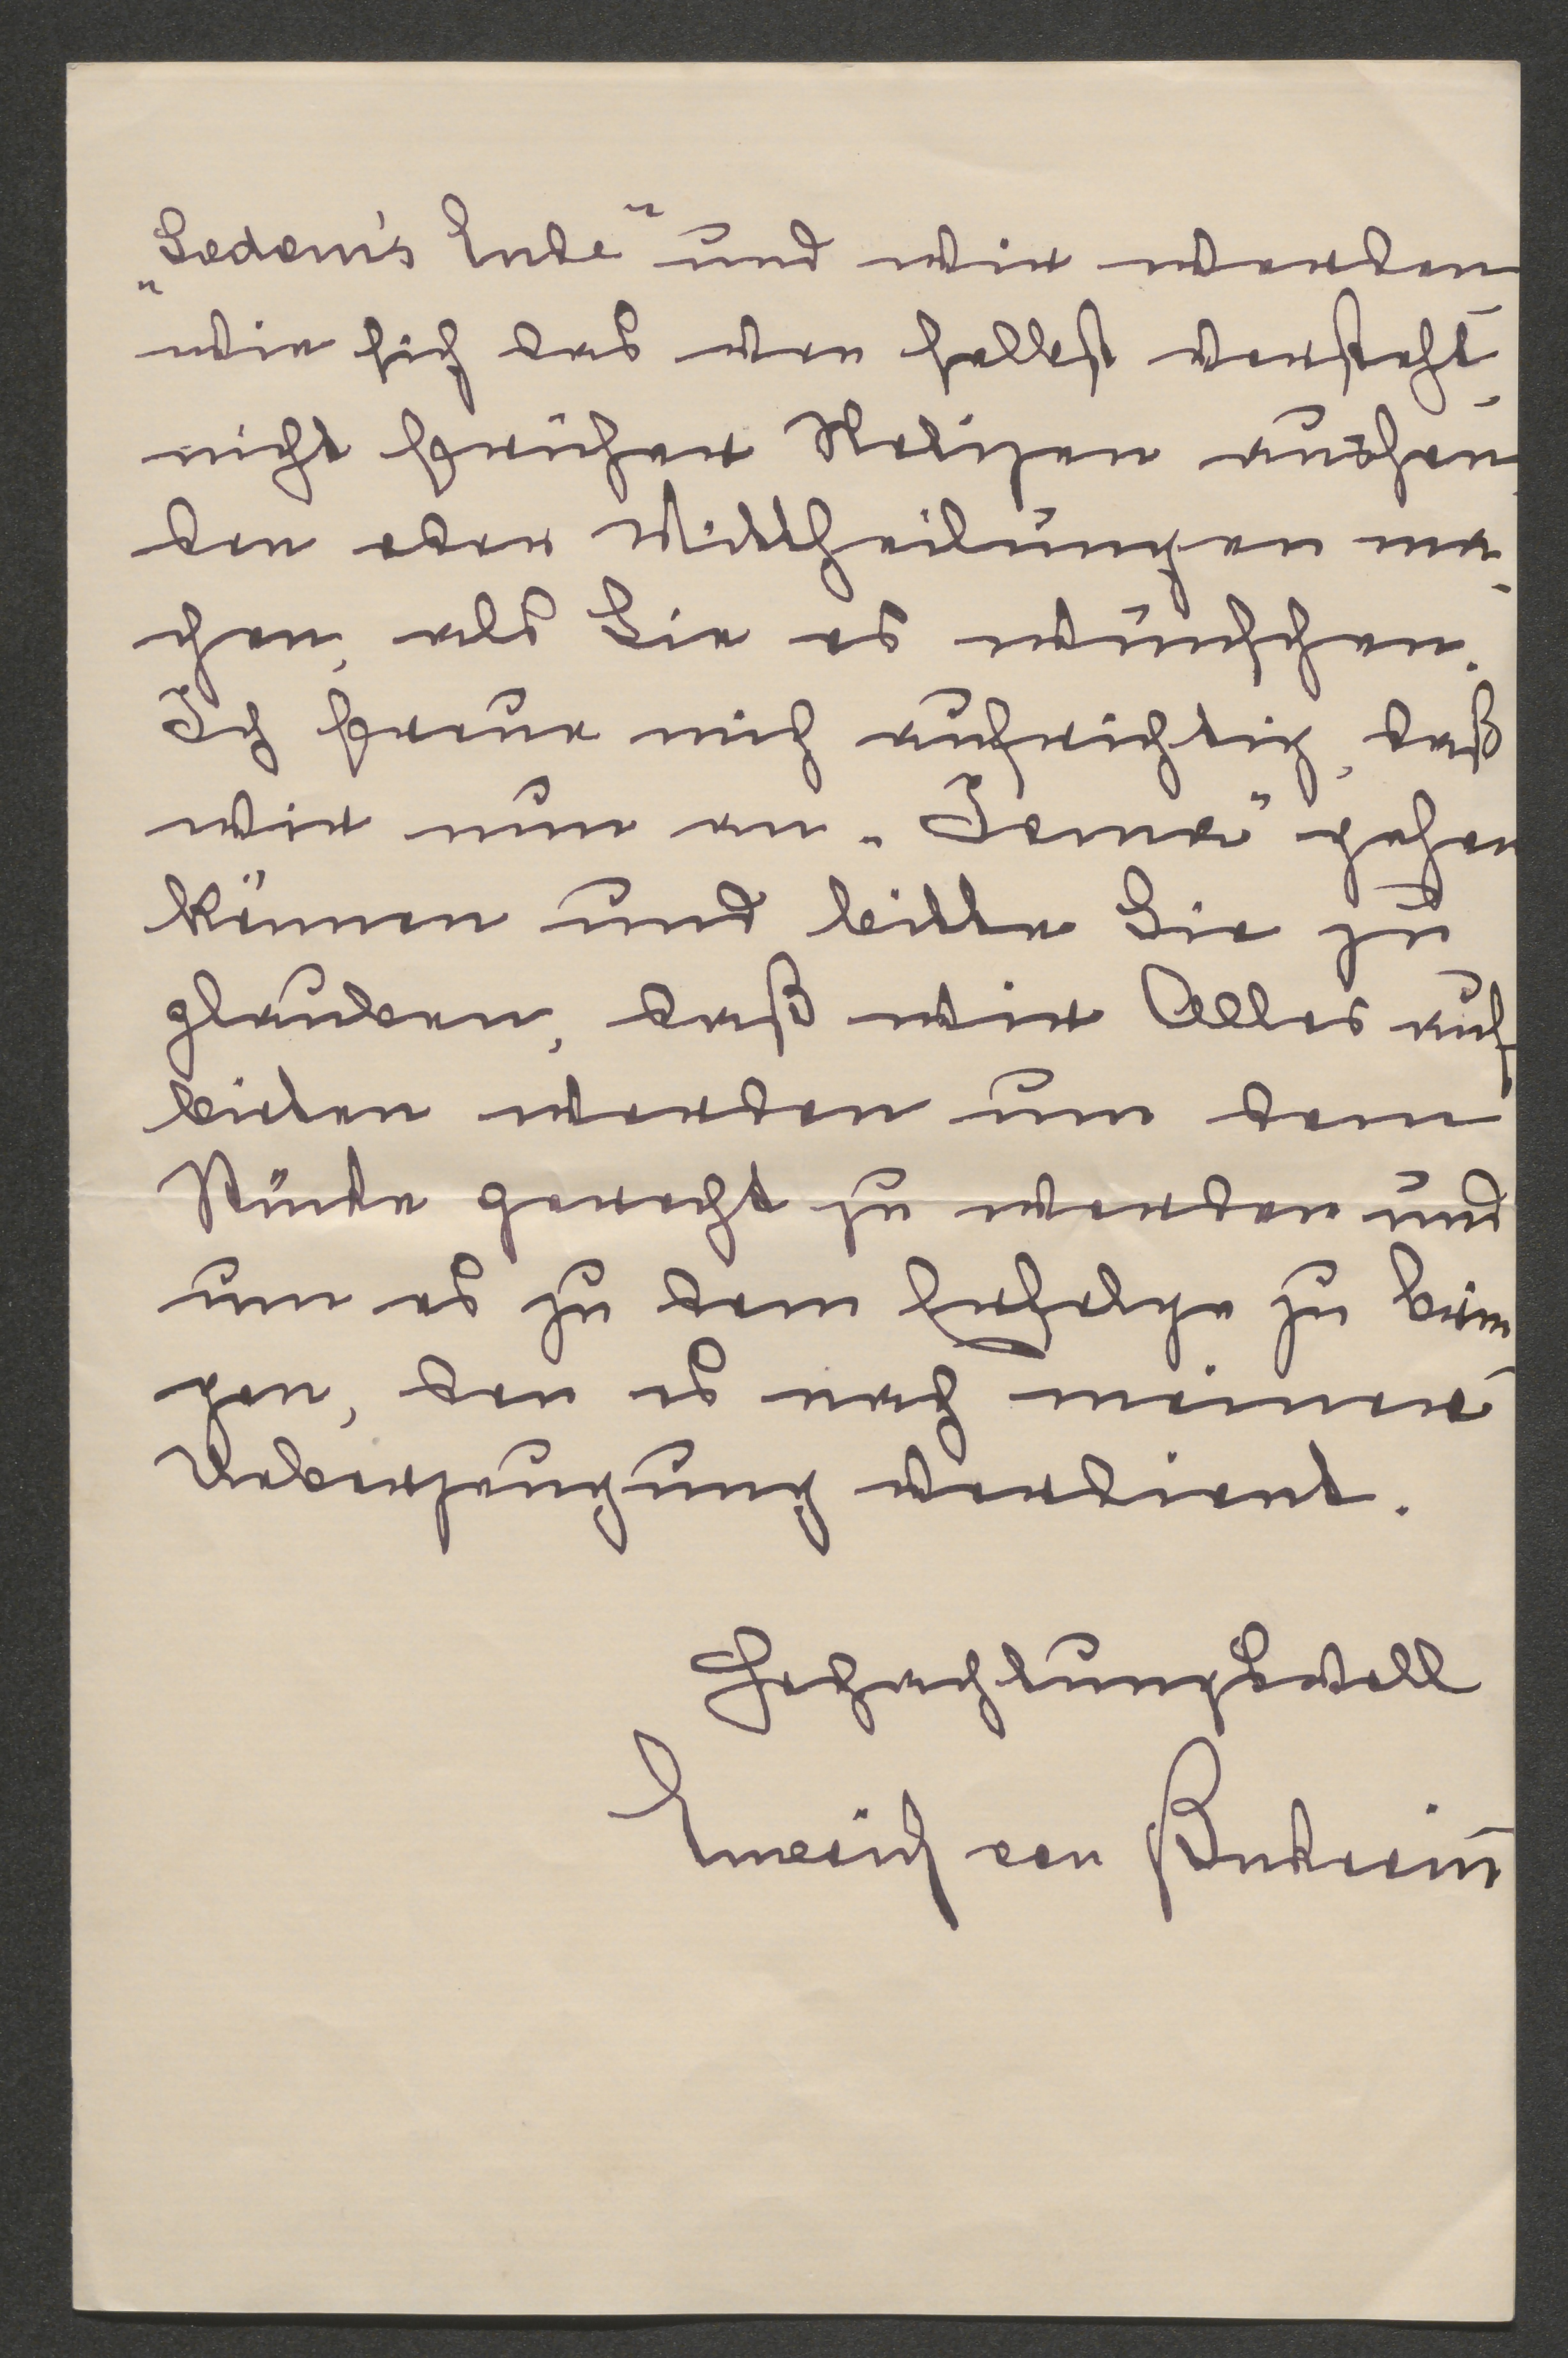 „Sodom's Ende“ und wir werden
wie sich das von selbst versteht
nicht früher Notizen aussen-
den oder Mittheilungen ma-
chen, als Sie es wünschen.
Ich freue mich aufrichtig, daß
wir nun an „Toma“ gehen
können und bitte Sie zu
glauben, daß wir Alles auf-
bieten werden um dem
Stücke gerecht zu werden und
um es zu dem Erfolge zu brin-
gen, den es nach meiner
Ueberzeugung verdient.
Hochachtungsvoll
Emerich von Bukovics